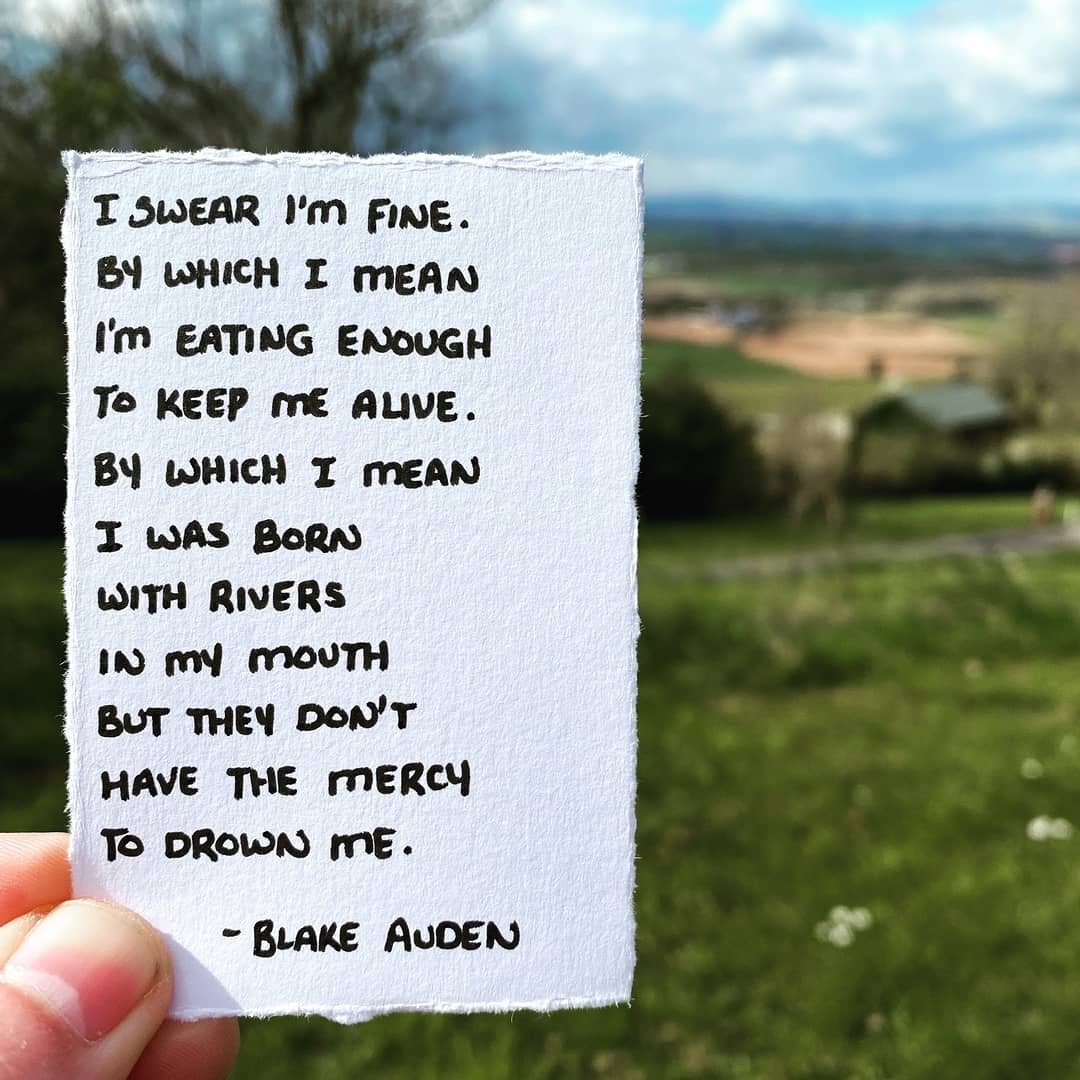 I SWEAR I'm FINE.
BY WHICH I mEAN
I'm EATING ENOUGH
To KEEP mE ALIVE.
BY WHICH I mEAN
I WAS BORN
WITH RIVERS
IN my mOUTH
BUT THEY DON'T
HAVE THE mERCY
To DROWN mE.
- BLAKE AUDEN